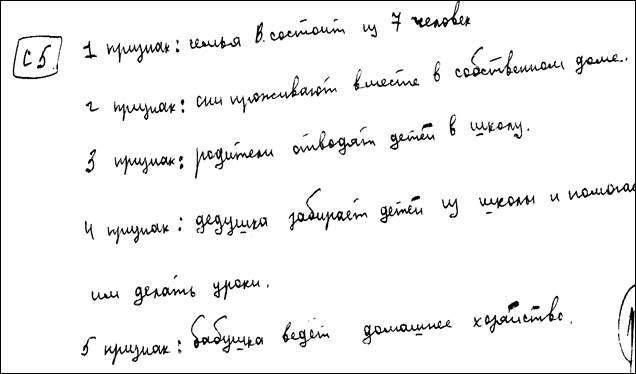 С5. 1 признак: семья В. состоит из 7 человек
2 признак: они проживают вместе в собственном доме.
3 признак: родители отводят детей в школу.
4 признак: дедушка забирает детей из школы и помогае
им делать уроки.
5 признак: бабушка ведёт домашнее хозяйство.